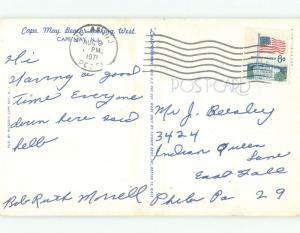 Cape May Beach Looking West.
CAPE MAY, N.J.
AUG 9
PM
1971
6¢
POST CARD
Hi
Having a good
time Everyone
down here said
hello
Bob Ruth Morrell
Mr J. Beasley
3424
Indian Queen
Lane
East Fall
Phila Pa 29